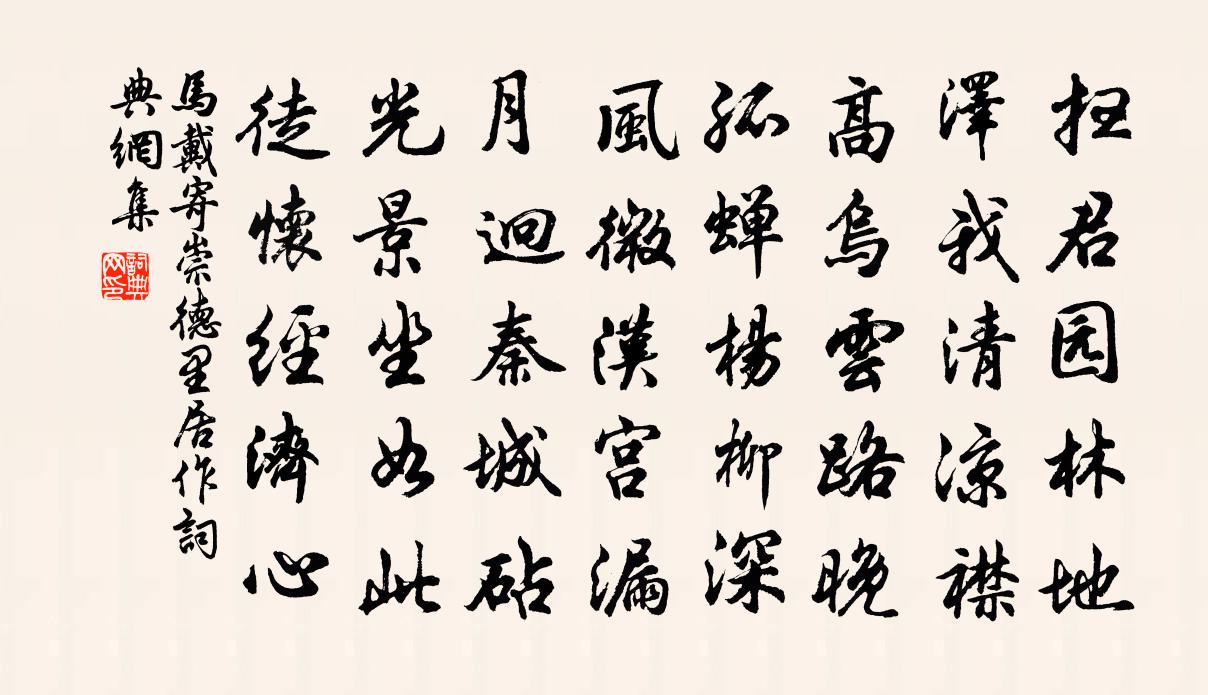 扫君园林地
澤我清涼襟
高烏雲路晚
孤蝉楊柳深
風微漢宫漏
月迥秦城砧
光景坐如此
徒懷經濟心
馬戴寄崇德里居作詞
典網集
詞典网印